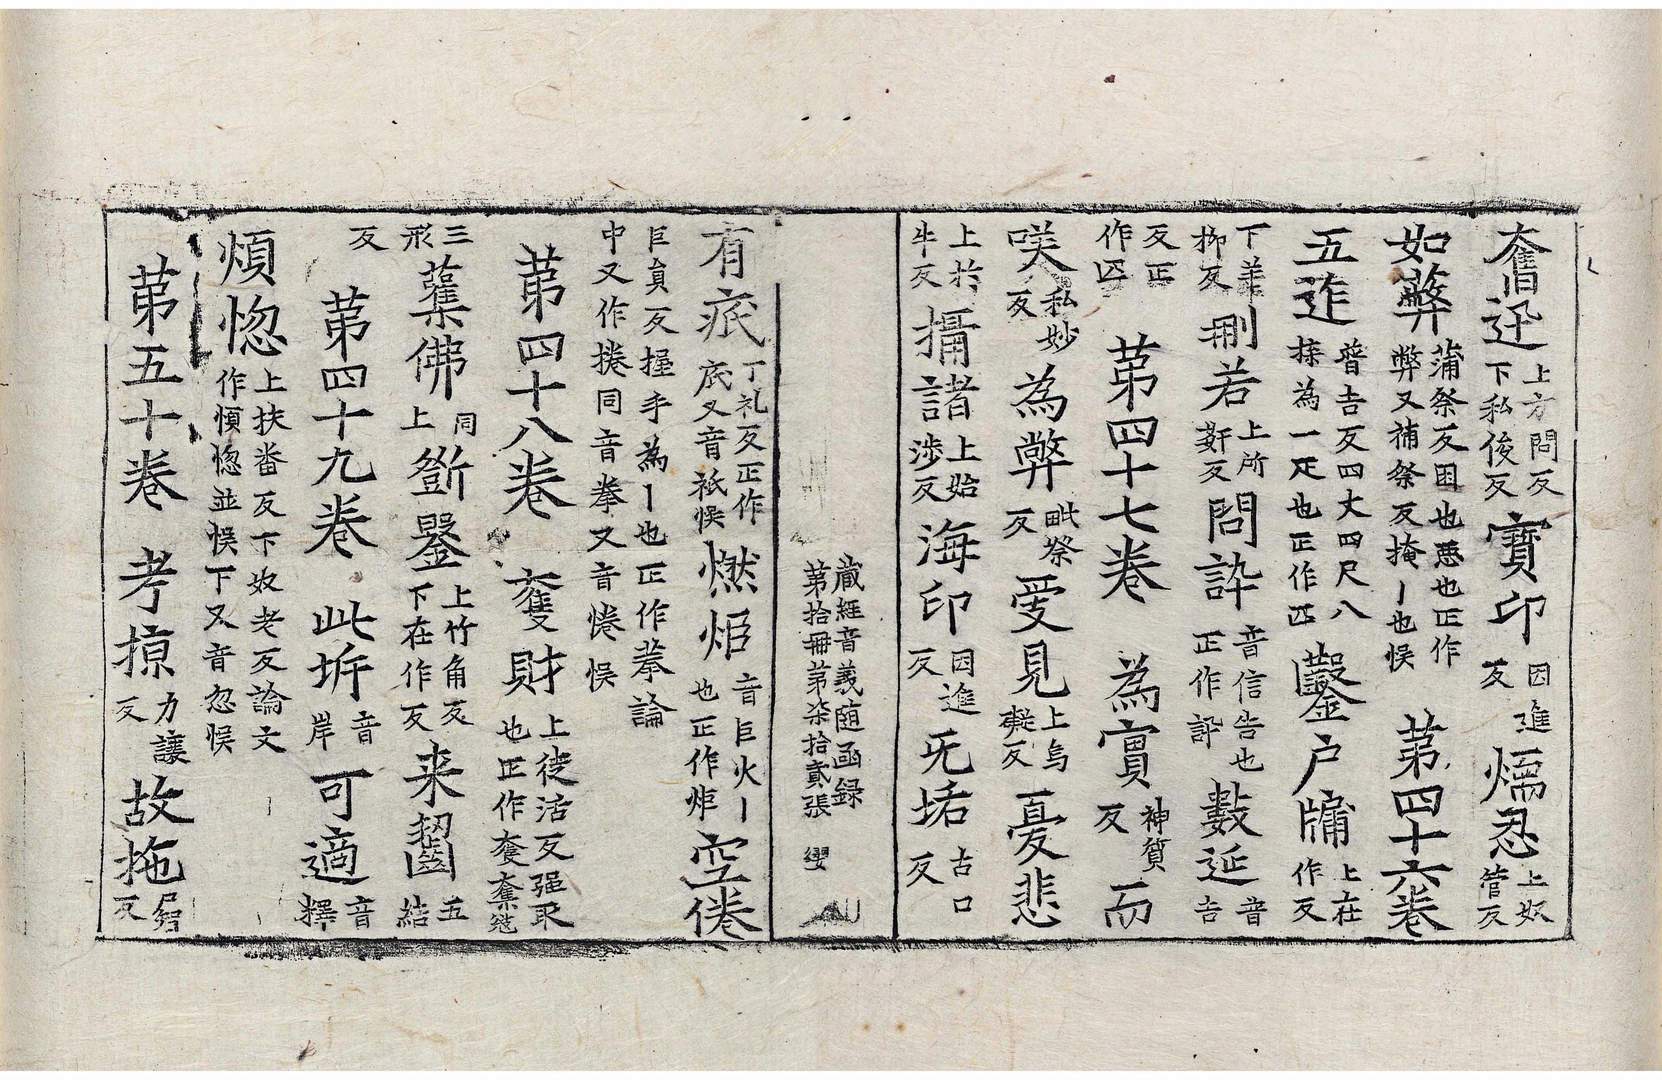 奮迅上方問反下私俊反寶印因進反煗忍上奴管反
如弊蒲祭反困也惡也正作弊又補祭反掩丨也悮第四十六卷
五迮普吉反四丈四尺八捺為一疋也正作匹鑿戶牖上在作反
下羊柳反刪若上所姧反問訙音信告也正作訊數延音吉
反正作匹第四十七卷為實神質反而
咲私妙反為弊毗祭反愛見上烏礙反憂悲
上於牛反攝諸上始涉反海印因進反无垢古口反
藏經音義隨函錄
第拾冊第柒拾貳張 纓
有疷丁礼反正作底又音祇悮燃炬音巨火丨也正作炬空倦
巨員反握手為丨也正作拳論中又作捲同音拳又音惓悮
第四十八卷奪財上徒活反强取也正作奪
三形藂佛同上斵鑿上竹角反下在作反来齧五結
反第四十九卷此圻音岸可適音擇
煩惚上扶畨反下奴老反論文作愩惚並悮下又音忽悮
第五十卷考掠力讓反故拖